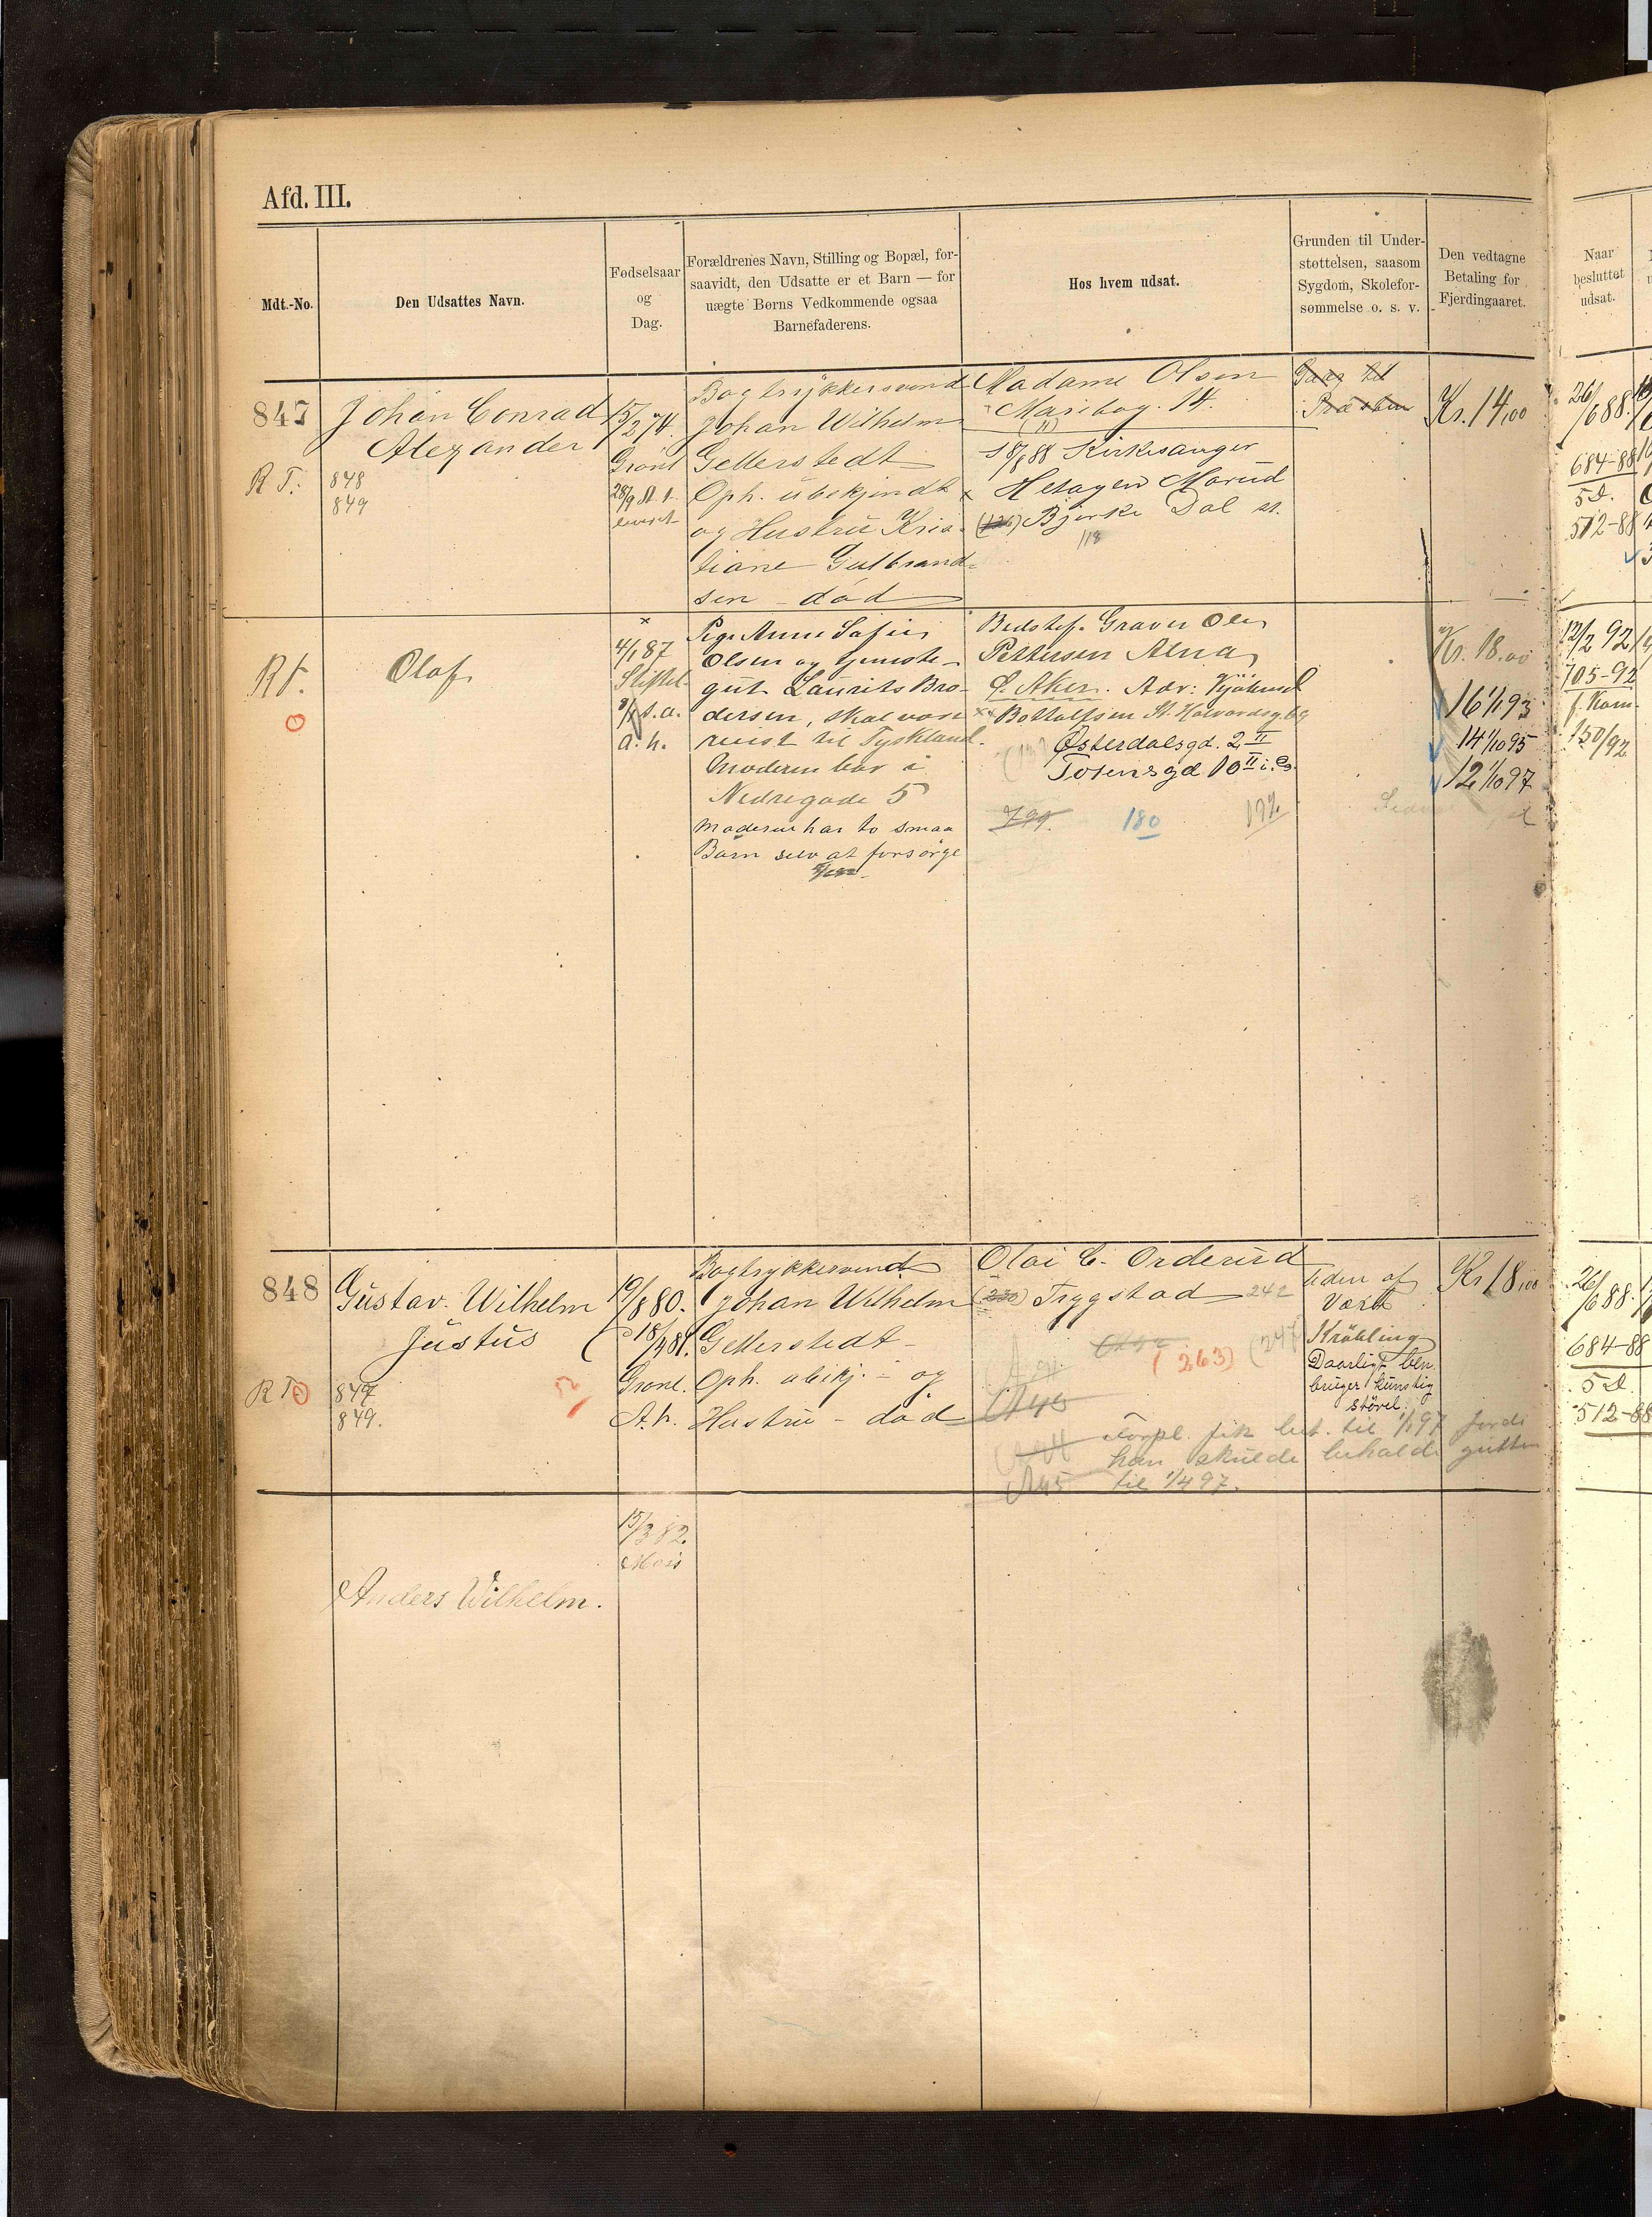 Afd. III.
Mdt.-No.
Den Udsattes Navn.
Fødselsaar
og
Dag.
Forældrenes Navn, Stilling og Bopæl, for-
saavidt, den Udsatte er et Barn — for
uægte Børns Vedkommende ogsaa
Barnefaderens.
Hos hvem udsat.
Grunden til Under-
støttelsen, saasom
Sygdom, Skolefor-
sømmelse o. s. v.
Den vedtagne
Betaling for
Fjerdingaaret.
Naar
besluttet
udsat.
847
Johan Conrad
Alexander
R T.
848
849
15/2 74.
Grønl
28/9
Bogtrykkersvend
Johan Wilhelm
Gellerstedt
Oph. ubekjendt
og Hustru Kris-
tiane Gulbrand-
sen - død
Madame Olsen
Maribog. 14.
18/8 88 Kirkesanger
Marud
Bjerke Dal st.
118
Kr. 14,00
26/6 88.
684-88
5 D.
512-88
Olaf
4/1 87
a. h.
Pige Anne Sofie
Olsen og tjeneste-
gut Laurits Bro-
dersen, skal være
reist til Tyskland.
Moderen bor i
Nedregade 5
Moderen har to smaa
Børn selv at forsørge
Bedstef. Graver Ole
Pettersen Alna
Ø. Aker. Adr:
Bottolfsen St. Halvardsg. 69
Østerdalsgd. 2 II
Totensgd 10 II
180
192
Kr. 18.00
16 1/1 93
14 1/10 95
12 1/10 97
12/2 92
705-92
f. Kom.
150/92
848
Gustav. Wilhelm
Justus
847
849.
19/8 80.
18/3 81.
Grønl.
A. h.
Bogtrykkersvend
Johan Wilhelm
Gellerstedt -
Oph. ubekj. - og
Hustru - død
Olai C. Orderud
Tryggstad 242
(263)
Uden af
Værd
Krøbling
Daarligt ben
bruger kunstig
støvel.
Kr 18,00
Forpl. fik bet. til 1/1 97 fordi
han skulde beholde gutten
til 1/4 97.
26/6 88.
684-88
5 D.
512-88
15/3 82.
Moss
Anders Wilhelm.